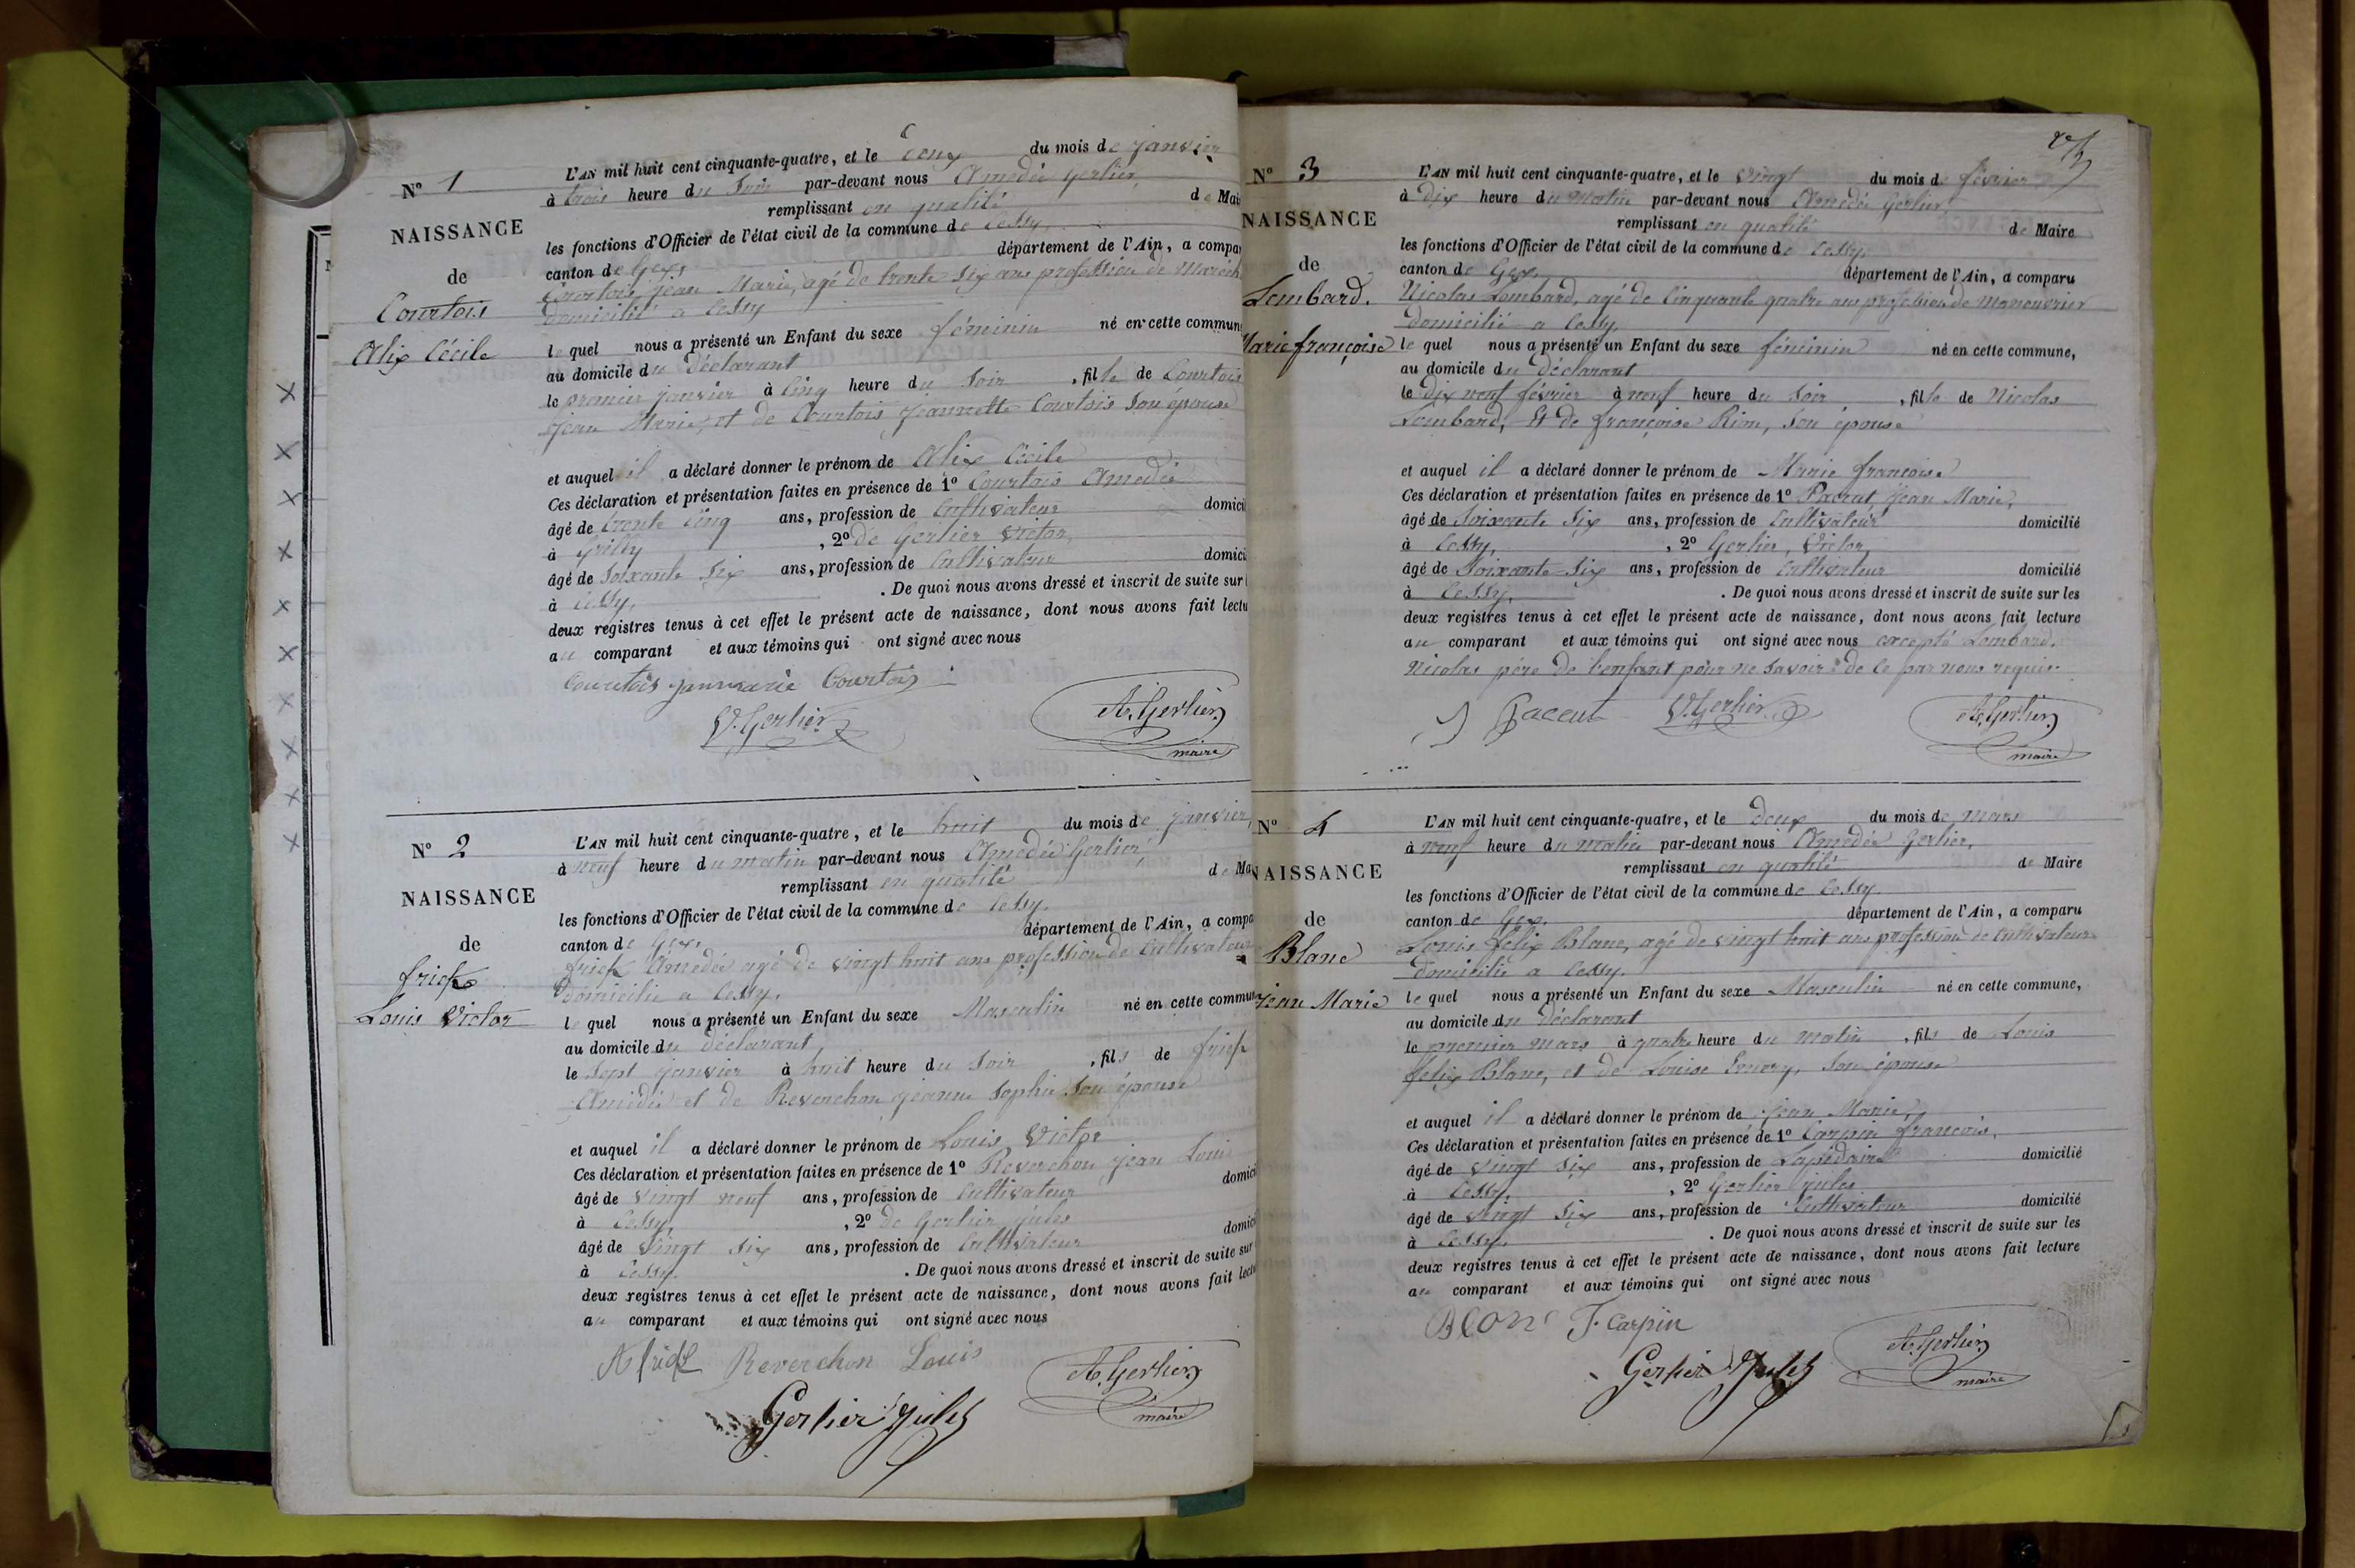 N° 1
NAISSANCE
de
Courtois
Alix Cécile
L'AN mil huit cent cinquante-quatre, et le deux du mois de janvier
à trois heure du Soir par-devant nous Amédée Gerlier,
remplissant en qualité de Mai
les fonctions d'Officier de l'état civil de la commune de Cessy,
canton de Gex, département de l'Ain, a compar
Courtois Jean Marie, agé de trente Six ans profession de Maréch
domicilié a Cessy
le quel nous a présenté un Enfant du sexe féminin né en cette commun
au domicile du déclarant
le premier janvier à Cinq heure du Soir , fille de Courtois
Jean Marie, et de Courtois Jeannette Courtois Son épouse
et auquel il a déclaré donner le prénom de Alix Cécile
Ces déclaration et présentation faites en présence de 1° Courtois Amédée
âgé de trente Cinq ans, profession de Cultivateur domicil
à Grilly , 2° de Gerlier Victor,
âgé de Soixante Six ans, profession de Cultivateur domici
à Cessy, . De quoi nous avons dressé et inscrit de suite sur l
deux registres tenus à cet effet le présent acte de naissance, dont nous avons fait lectu
au comparant et aux témoins qui ont signé avec nous
Courtois janmarie Courtois
V. Gerlier
A. Gerlier
maire
N° 2
NAISSANCE
de
frick
Louis Victor
L'AN mil huit cent cinquante-quatre, et le huit du mois de janvier,
à neuf heure du matin par-devant nous Amédée Gerlier,
remplissant en qualité de Ma
les fonctions d'Officier de l'état civil de la commune de Cessy.
canton de Gex, département de l'Ain, a compa
frick Amédée agé de vingt huit ans profession de Cultivateur
domicilié a Cessy.
le quel nous a présenté un Enfant du sexe Masculin né en cette commun
au domicile du déclarant
le Sept janvier à huit heure du Soir , fils de frick
Amédée et de Reverchon jeanne Sophie Son épouse
et auquel il a déclaré donner le prénom de Louis Victor
Ces déclaration et présentation faites en présence de 1° Reverchon jean Louis
âgé de vingt neuf ans, profession de Cultivateur domici
à Cessy, , 2° de Gerlier jules
âgé de vingt Six ans, profession de Cultivateur domici
à Cessy. . De quoi nous avons dressé et inscrit de suite sur
deux registres tenus à cet effet le présent acte de naissance, dont nous avons fait lectu
au comparant et aux témoins qui ont signé avec nous
A frick Reverchon Louis
Gerlier Jules
A. Gerlier
maire
N° 3
NAISSANCE
de
Lombard.
Marie françoise
L'AN mil huit cent cinquante-quatre, et le vingt du mois de février
à Dix heure du Matin par-devant nous Amédée Gerlier
remplissant en qualité de Maire
les fonctions d'Officier de l'état civil de la commune de Cessy,
canton de Gex, département de l'Ain, a comparu
Nicolas Lombard, agé de Cinquante quatre ans profession de Manouvrier
domicilié a Cessy,
le quel nous a présenté un Enfant du sexe féminin né en cette commune,
au domicile du déclarant
le dix neuf février à neuf heure du Soir , fille de Nicolas
Lombard, Et de françoise Rion, Son épouse
et auquel il a déclaré donner le prénom de Marie françoise
Ces déclaration et présentation faites en présence de 1° Jean Marie,
âgé de Soixante Six ans, profession de Cultivateur domicilié
à Cessy, , 2° Gerlier, Victor,
âgé de Soixante-Six ans, profession de Cultivateur domicilié
à Cessy, . De quoi nous avons dressé et inscrit de suite sur les
deux registres tenus à cet effet le présent acte de naissance, dont nous avons fait lecture
au comparant et aux témoins qui ont signé avec nous excepté Lombard,
Nicolas père de l'enfant pour ne Savoir de ce par nous requis
V. Gerlier
A. Gerlier
maire
N° 4
NAISSANCE
de
Blanc
Jean Marie
L'AN mil huit cent cinquante-quatre, et le Deux du mois de mars
à neuf heure du Matin par-devant nous Amédée Gerlier,
remplissant en qualité de Maire
les fonctions d'Officier de l'état civil de la commune de Cessy.
canton de Gex. département de l'Ain, a comparu
Louis félix Blanc, agé de vingt huit ans profession de Cultivateur
domicilié a Cessy.
le quel nous a présenté un Enfant du sexe Masculin né en cette commune,
au domicile du déclarant
le premier mars à quatre heure du matin , fils de Louis
félix Blanc, et de Louise Emery, Son épouse
et auquel il a déclaré donner le prénom de Jean Marie,
Ces déclaration et présentation faites en présence de 1° Carpin françois,
âgé de vingt Six ans, profession de Lapidaire domicilié
à Cessy, , 2° Gerlier jules
âgé de vingt Six ans, profession de Cultivateur domicilié
à Cessy, . De quoi nous avons dressé et inscrit de suite sur les
deux registres tenus à cet effet le présent acte de naissance, dont nous avons fait lecture
au comparant et aux témoins qui ont signé avec nous
Blanc F. Carpin
Gerlier Jules
A. Gerlier
maire